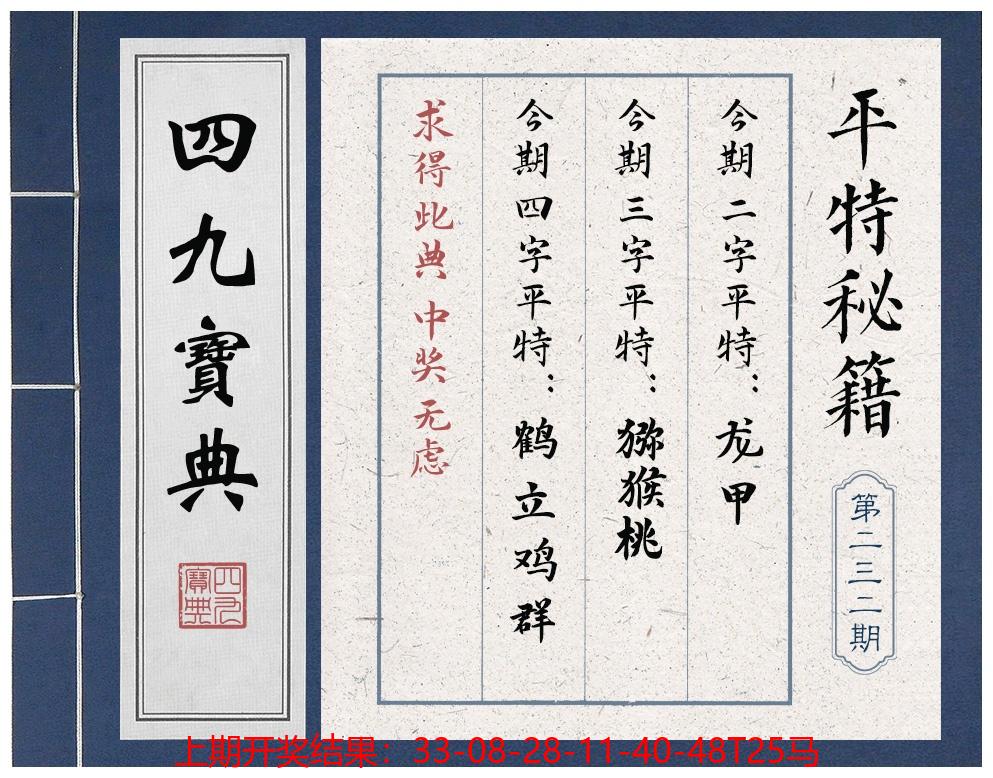 四九寶典
四九寶典
平特秘籍
第二三二期
今期二字平特：龙甲
今期三字平特：猕猴桃
今期四字平特：鹤立鸡群
求得此典 中奖无虑
上期开奖结果：33-08-28-11-40-48T25马